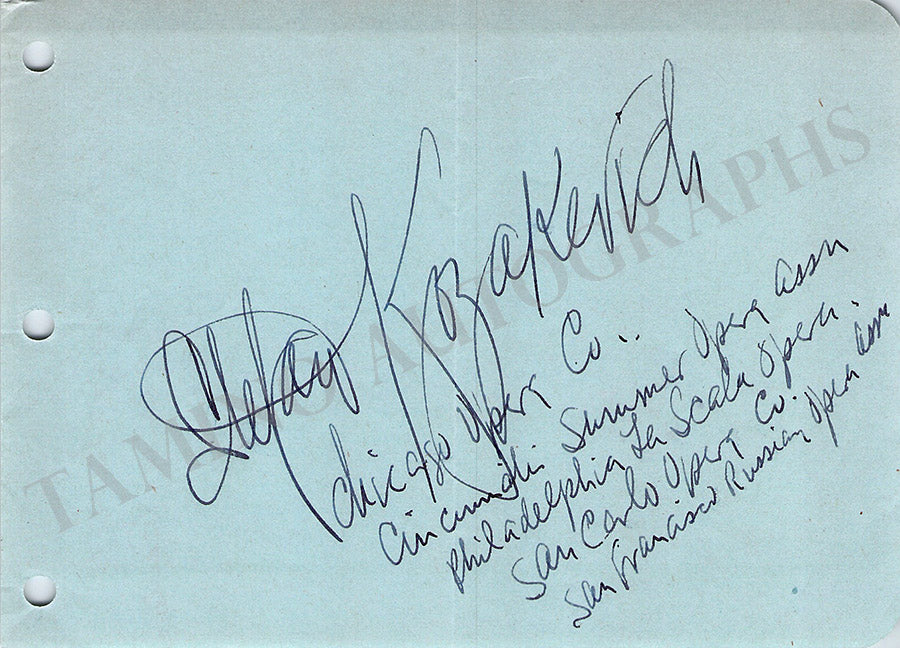 Stefan Kozakevich
Chicago Opera Co..
Cincinnati Summer Opera Assn
Philadelphia La Scala Opera.
San Carlo Opera Co.
San Francisco Russian Opera Assn
TAMINO AUTOGRAPHS